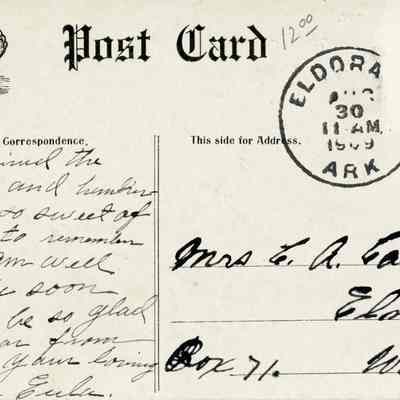 Post Card
12 00
ELDORA
AUG
30
11 AM
1909
ARK
Correspondence.
This side for Address.
the
and
so sweet of
to remember
am well
soon
be so glad
from
your loving
Eula.
Mrs C. A.
Box 71.